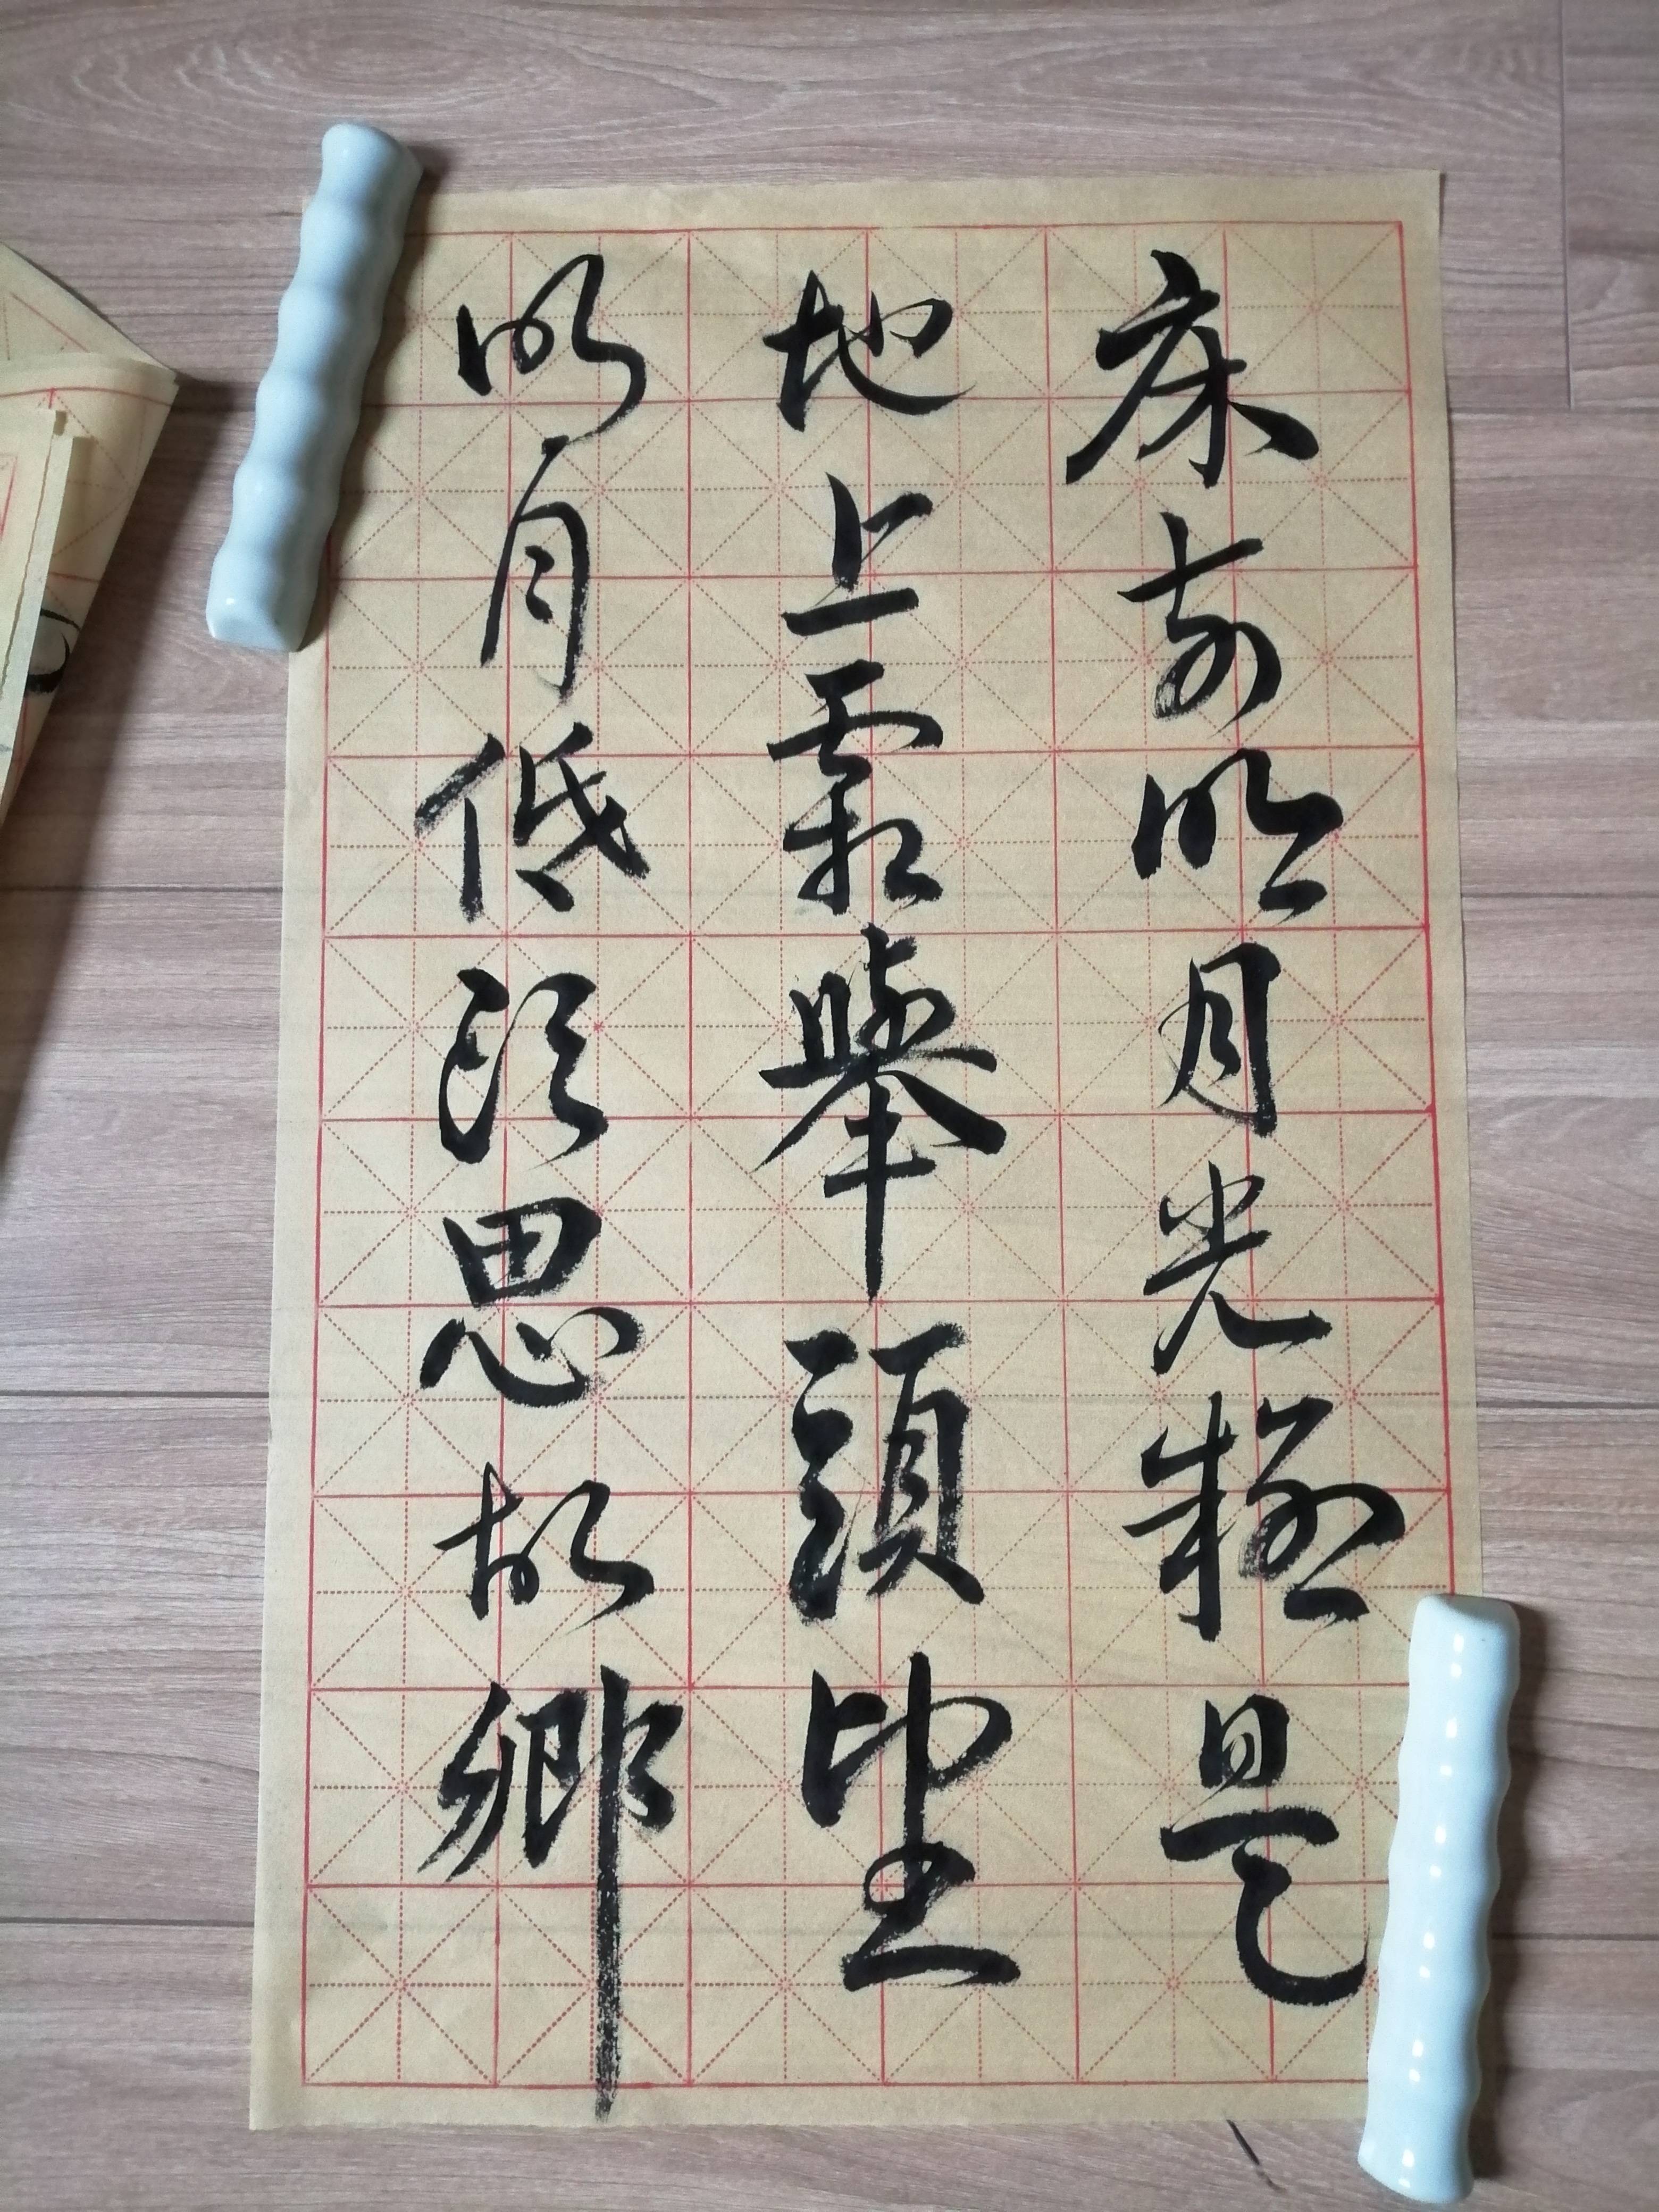 床前明月光疑是
地上霜舉頭望
明月低頭思故鄉